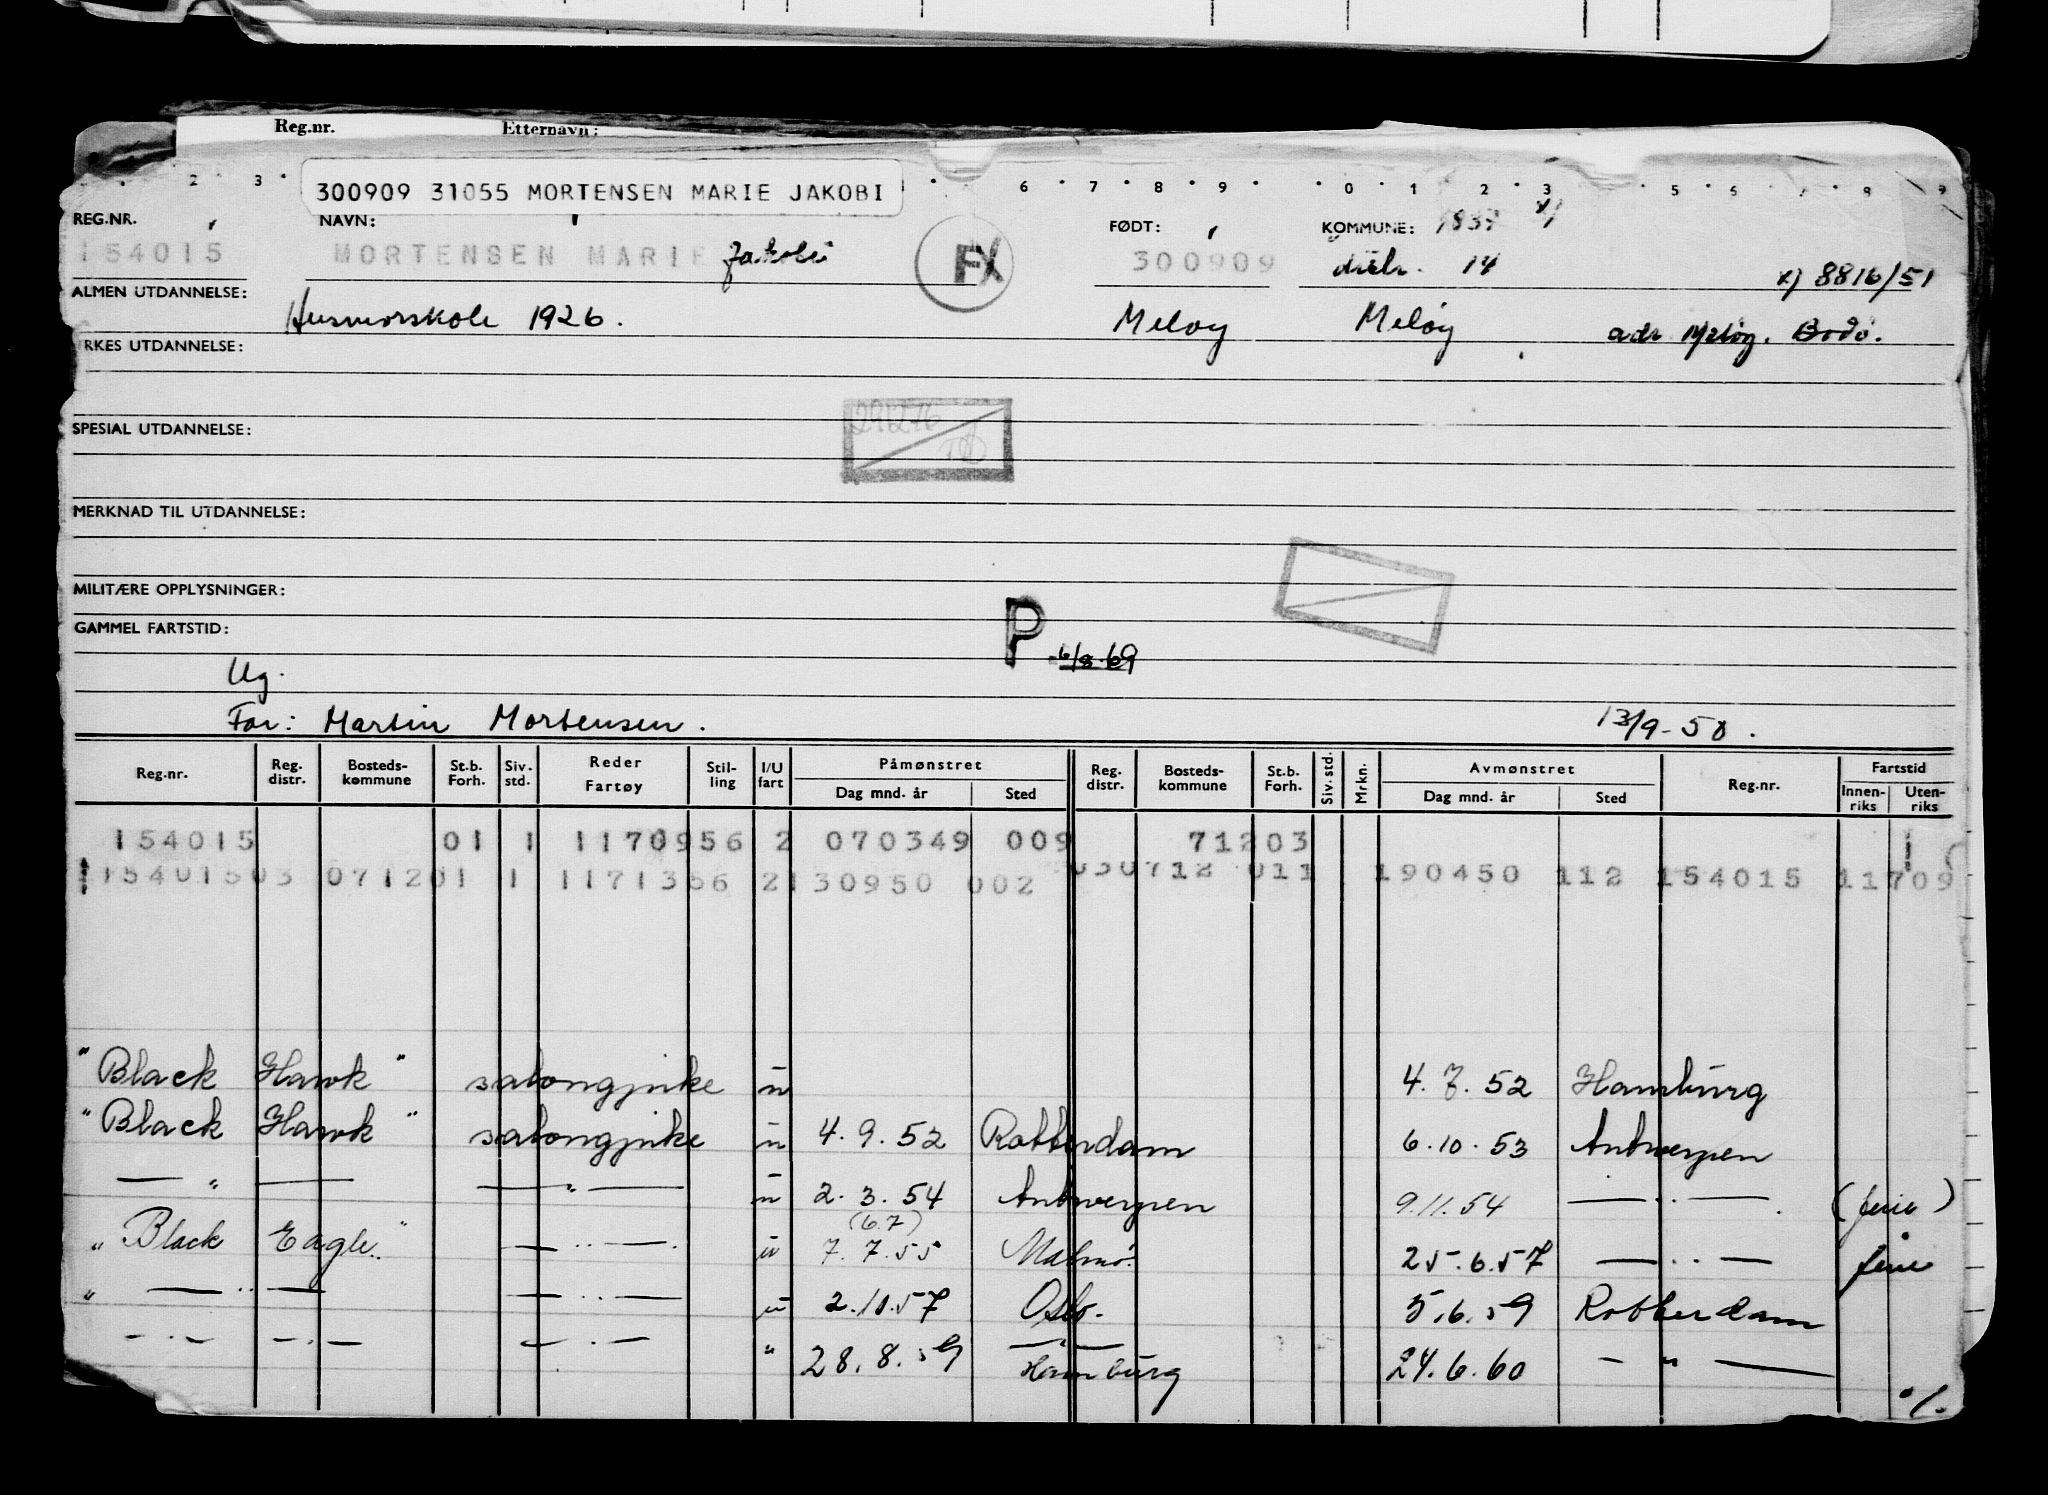 Reg.nr. Etternavn:
2 3 6 7 8 9 0 1 2 3 5 6 8 9
300909 31055 MORTENSEN MARIE JAKOBI
REG.NR. NAVN: FØDT: KOMMUNE:
154015 MORTENSEN MARIE Jakobi FX 300909 14 x) 8816/51
ALMEN UTDANNELSE: Husmorskole 1926. Meløy Meløy adr. Meløy. Bodø.
YRKES UTDANNELSE:
SPESIAL UTDANNELSE:
MERKNAD TIL UTDANNELSE:
MILITÆRE OPPLYSNINGER:
GAMMEL FARTSTID: P 6/8-69
Ug.
Far: Martin Mortensen. 13/9-50.
Reg.nr. Reg. distr. Bosteds-kommune St.b. Forh. Siv. std. Reder Fartøy Stil-ling I/U fart Påmønstret Dag mnd. år Sted Reg. distr. Bosteds-kommune St.b. Forh. Siv. std. Mrkn. Avmønstret Dag mnd. år Sted Reg.nr. Fartstid Innen-riks Uten-riks
154015 01 1 1170956 2 070349 009 71203 1
115401503 071201 1 1171356 2130950 002 030712 011 190450 112 154015 11709
"Black Hawk" salongpike u 4.7.52 Hamburg
"Black Hawk" salongpike u 4.9.52 Rotterdam 6.10.53 Antwerpen
— " — — " — u 2.3.54 Antwerpen 9.11.54 — " — (ferie)
(6.7)
"Black Eagle." — " — u 7.7.55 Malmö. 25.6.57 — " — ferie
" — " — — " — u 2.10.57 Oslo. 5.6.59 Rotterdam
— " — — " — " 28.8.59 Hamburg 24.6.60 — " —